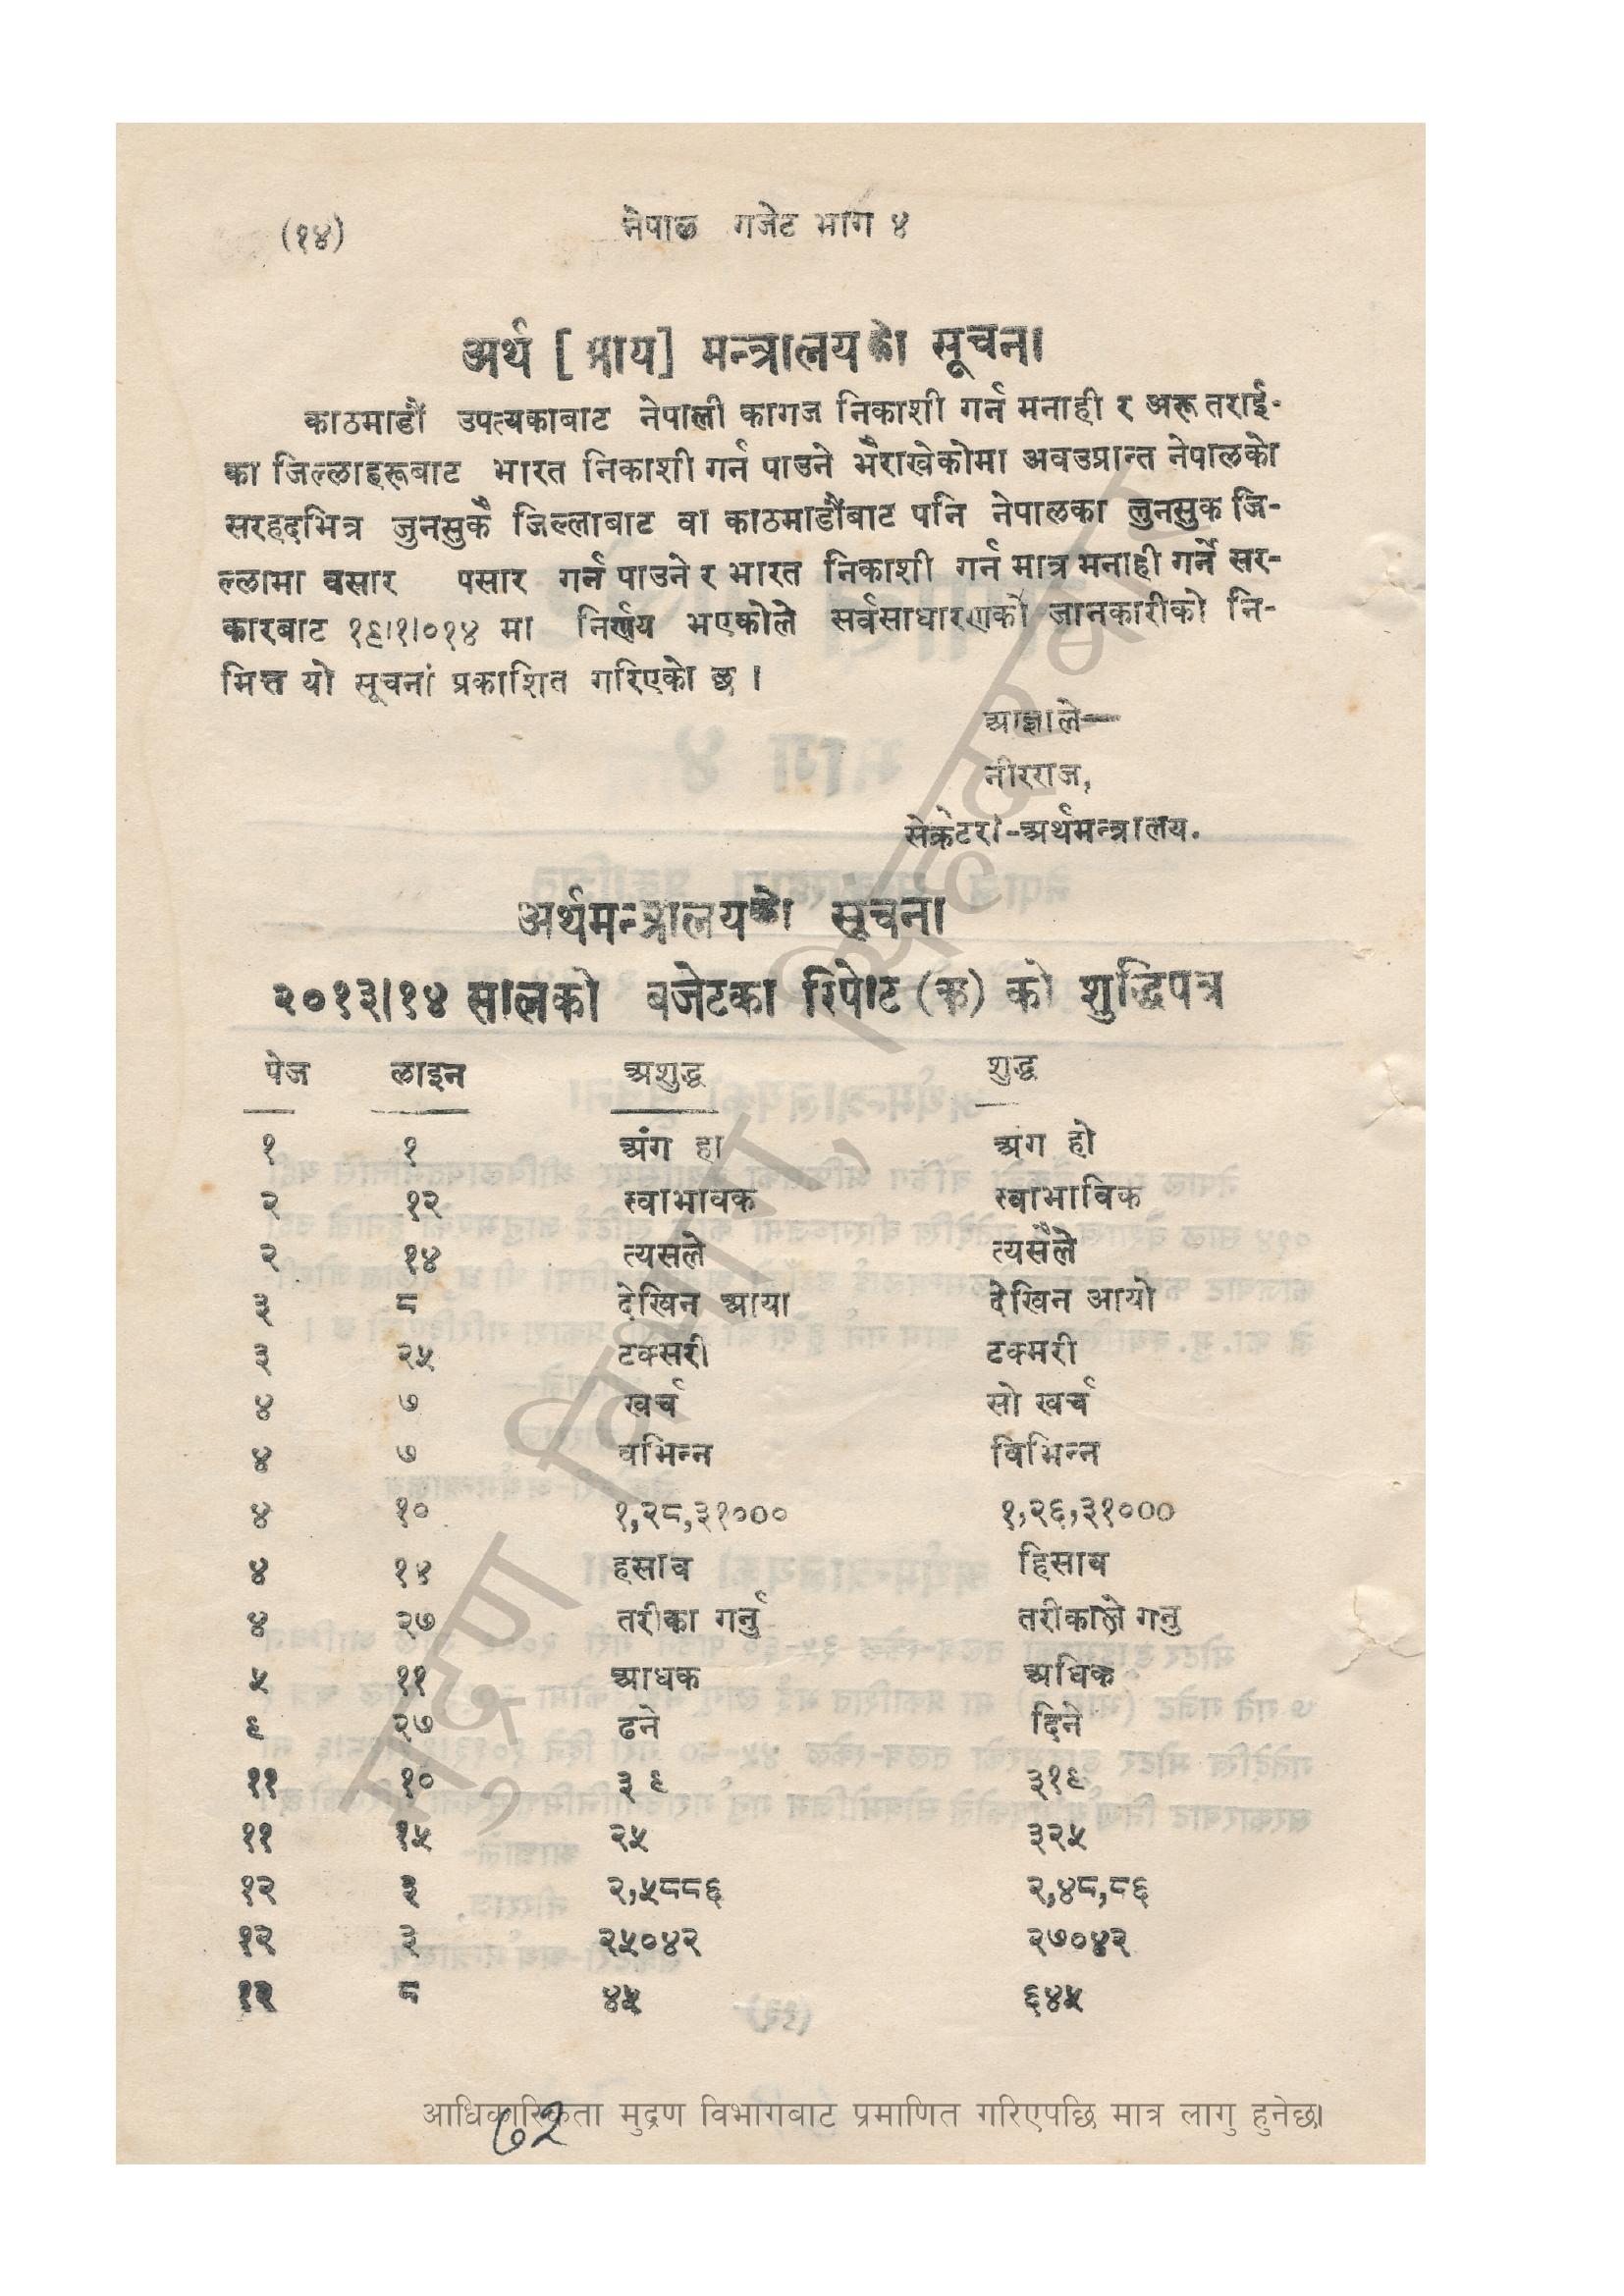 (१४) नेपाल गजेट भाग ४
अर्थ [ आय] मन्त्रालयको सूचना
काठमाडौं उपत्यकाबाट नेपाली कागज निकाशी गर्न मनाही र अरू तराई-
का जिल्लाहरूबाट भारत निकाशी गर्न पाउने भैराखेकोमा अवउप्रान्त नेपालको
सरहदभित्र जुनसुकै जिल्लाबाट वा काठमाडौंबाट पनि नेपालका जुनसुक जि-
ल्लामा वसार पसार गर्न पाउने र भारत निकाशी गर्न मात्र मनाही गर्ने सर-
कारबाट १९।१।०१४ मा निर्णय भएकोले सर्वसाधारणको जानकारीको नि-
मित्त यो सूचना प्रकाशित गरिएको छ ।
आज्ञाले—
नीरराज,
सेक्रेटरी-अर्थमन्त्रालय.
अर्थमन्त्रालयको सूचना
२०१३।१४ सालको बजेटका रिपोट (क) को शुद्धिपत्र
पेज लाइन अशुद्ध शुद्ध
१ १ अंग हा अंग हो
२ १२ स्वाभावक स्वाभाविक
२ १४ त्यसले त्यसैले
३ ८ देखिन आया देखिन आयो
३ २५ टक्सरी टक्मरी
४ ७ खर्च सो खर्च
४ ७ वभिन्न विभिन्न
४ १० १,२८,३१००० १,२६,३१०००
४ १४ हसाव हिसाव
४ २७ तरीका गर्नु तरीकाले गर्नु
५ ११ आधक अधिक
९ २७ ढने दिने
११ १० ३ ९ ३१९
११ १५ २५ ३२५
१२ ३ २,५८८६ २,४८,८६
१२ ३ २५०४२ २७०४२
१२ ८ ४५ ६४५
आधिकारिकता मुद्रण विभागबाट प्रमाणित गरिएपछि मात्र लागु हुनेछ।
७२
मुद्रण विभाग, सिंहदरबार